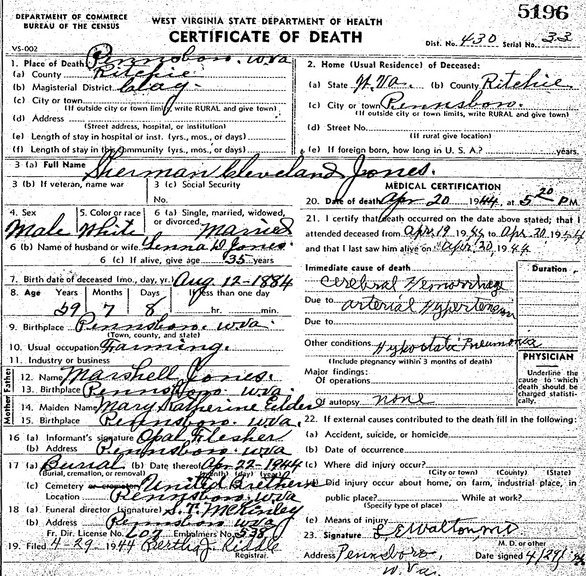 5196
DEPARTMENT OF COMMERCE
BUREAU OF THE CENSUS
WEST VIRGINIA STATE DEPARTMENT OF HEALTH
CERTIFICATE OF DEATH
VS-002
Dist. No. 430 Serial No. 33
1. Place of Death: Pennsboro. W.Va
(a) County Ritchie
(b) Magisterial District Clay.
(c) City or town
(If outside city or town limits, write RURAL and give town)
(d) Address
(Street address, hospital, or institution)
(e) Length of stay in hospital or inst. (yrs., mos., or days)
(f) Length of stay in this Community (yrs., mos., or days)
2. Home (Usual Residence) of Deceased:
(a) State W.Va. (b) County Ritchie
(c) City or town Pennsboro.
(If outside city or town limits, write RURAL and give town)
(d) Street No.
(If rural give location)
(e) If foreign born, how long in U. S. A.? years.
3 (a) Full Name Sherman Cleveland Jones.
3 (b) If veteran, name war
3 (c) Social Security
No.
4. Sex
Male
5. Color or race
White
6 (a) Single, married, widowed,
or divorced Married
6 (b) Name of husband or wife Lenna D. Jones
6 (c) If alive, give age 35 years
7. Birth date of deceased (mo., day, yr.) Aug 12-1884
8. Age Years Months Days If less than one day
59 7 8 hr. min.
9. Birthplace Pennsboro. W.Va.
(Town, county, and state)
10. Usual occupation Farming.
11. Industry or business
Father
12. Name Marshell Jones.
13. Birthplace Pennsboro. W.Va.
Mother
14. Maiden Name Mary Katherine Elder
15. Birthplace Pennsboro. W.Va.
16 (a) Informant's signature Opal Flesher
(b) Address Pennsboro. W.Va
17 (a) Burial (b) Date thereof Apr-22-1944
(Burial, cremation, or removal) (Month) (day) (year)
(c) Cemetery or crematory United Brethern
Location Pennsboro. W.Va
18 (a) Funeral director (signature) S.T. McKinley
(b) Address Pennsboro W.Va
Fr. Dir. License No. 607 Embalmers No. 538
19. Filed 4-29-1944 Bertha J. Riddle
Registrar.
MEDICAL CERTIFICATION
20. Date of death Apr 20 1944, at 5 20 P.M.
21. I certify that death occurred on the date above stated; that I
attended deceased from Apr. 19 1944 to Apr. 20 1944
and that I last saw him alive on Apr. 20, 1944
Duration
Immediate cause of death
Cerebral Hemorrhage
Due to arterial Hypertension
Due to
Other conditions Hypostatic Pneumonia
(Include pregnancy within 3 months of death)
Major findings:
Of operations
Of autopsy none
PHYSICIAN
Underline
the cause
to which
death should
be charged
statistically.
22. If external causes contributed to the death fill in the following:
(a) Accident, suicide, or homicide
(b) Date of occurrence
(c) Where did injury occur?
(City or town) (County) (State)
(d) Did injury occur about home, on farm, industrial place, in
public place? While at work?
(Specify type of place)
(e) Means of injury
23. Signature L E Walton MD
M. D. or other
Address Pennsboro, W. Va. Date signed 4/29/44